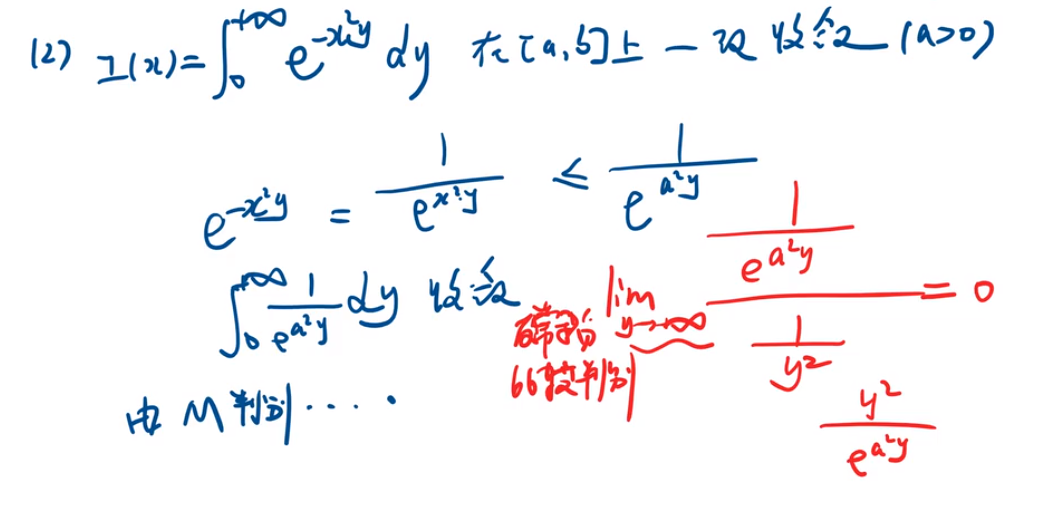 (2) I(x)=∫₀^{+∞} e^{-x²y} dy 在[a,b]上一致收敛 (a>0)
e^{-x²y} = 1/e^{x²y} ≤ 1/e^{a²y}
∫₀^{+∞} 1/e^{a²y} dy 收敛
由M判别····
lim_{y→+∞} (1/e^{a²y})/(1/y²) = 0
比较判别
y²/e^{a²y}